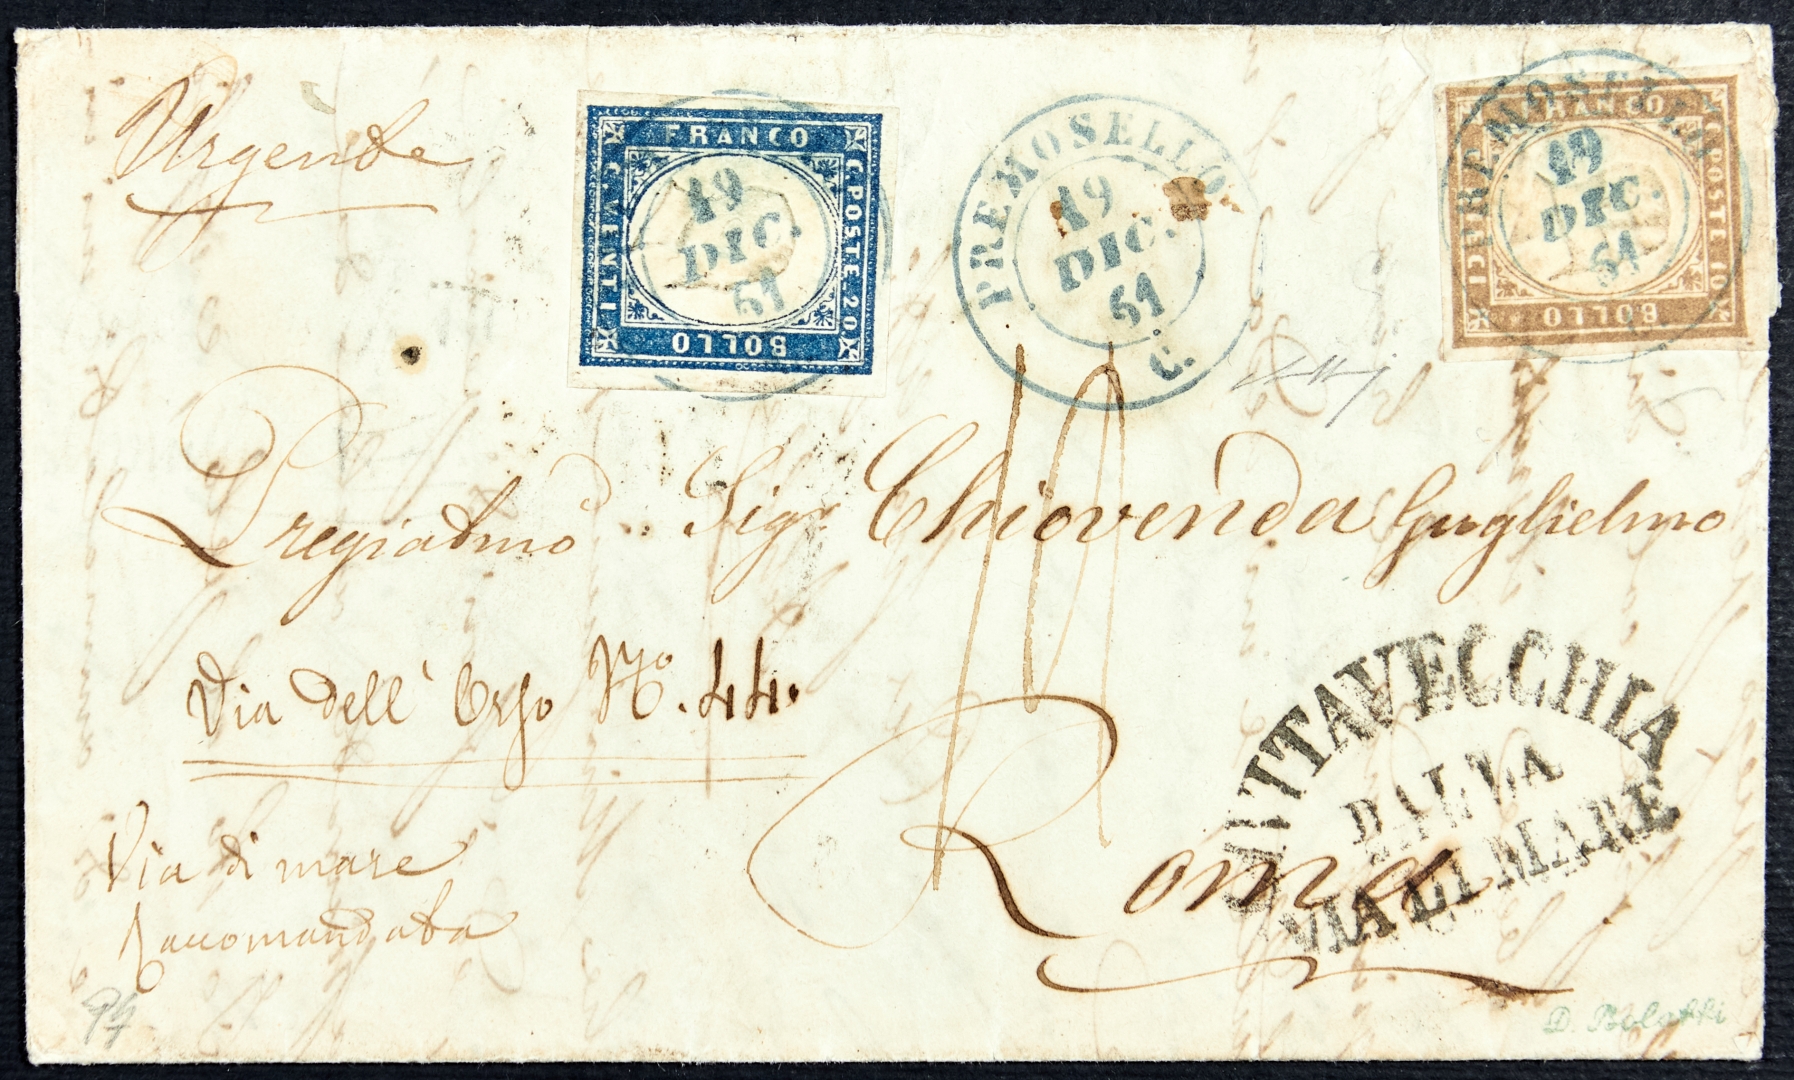 Urgente
FRANCO
C. POSTE 20
BOLLO
C. VENTI
19
DIC.
61
PREMOSELLO
19
DIC.
61
C.
PREMOSELLO
FRANCO
C. POSTE 10
BOLLO
19
DIC.
61
Pregiatmo Sigr Chiovenda Guglielmo
Via dell' Orso No. 44.
Roma
Via di mare
Raccomandata
CIVITAVECCHIA
DALLA
VIA DI MARE